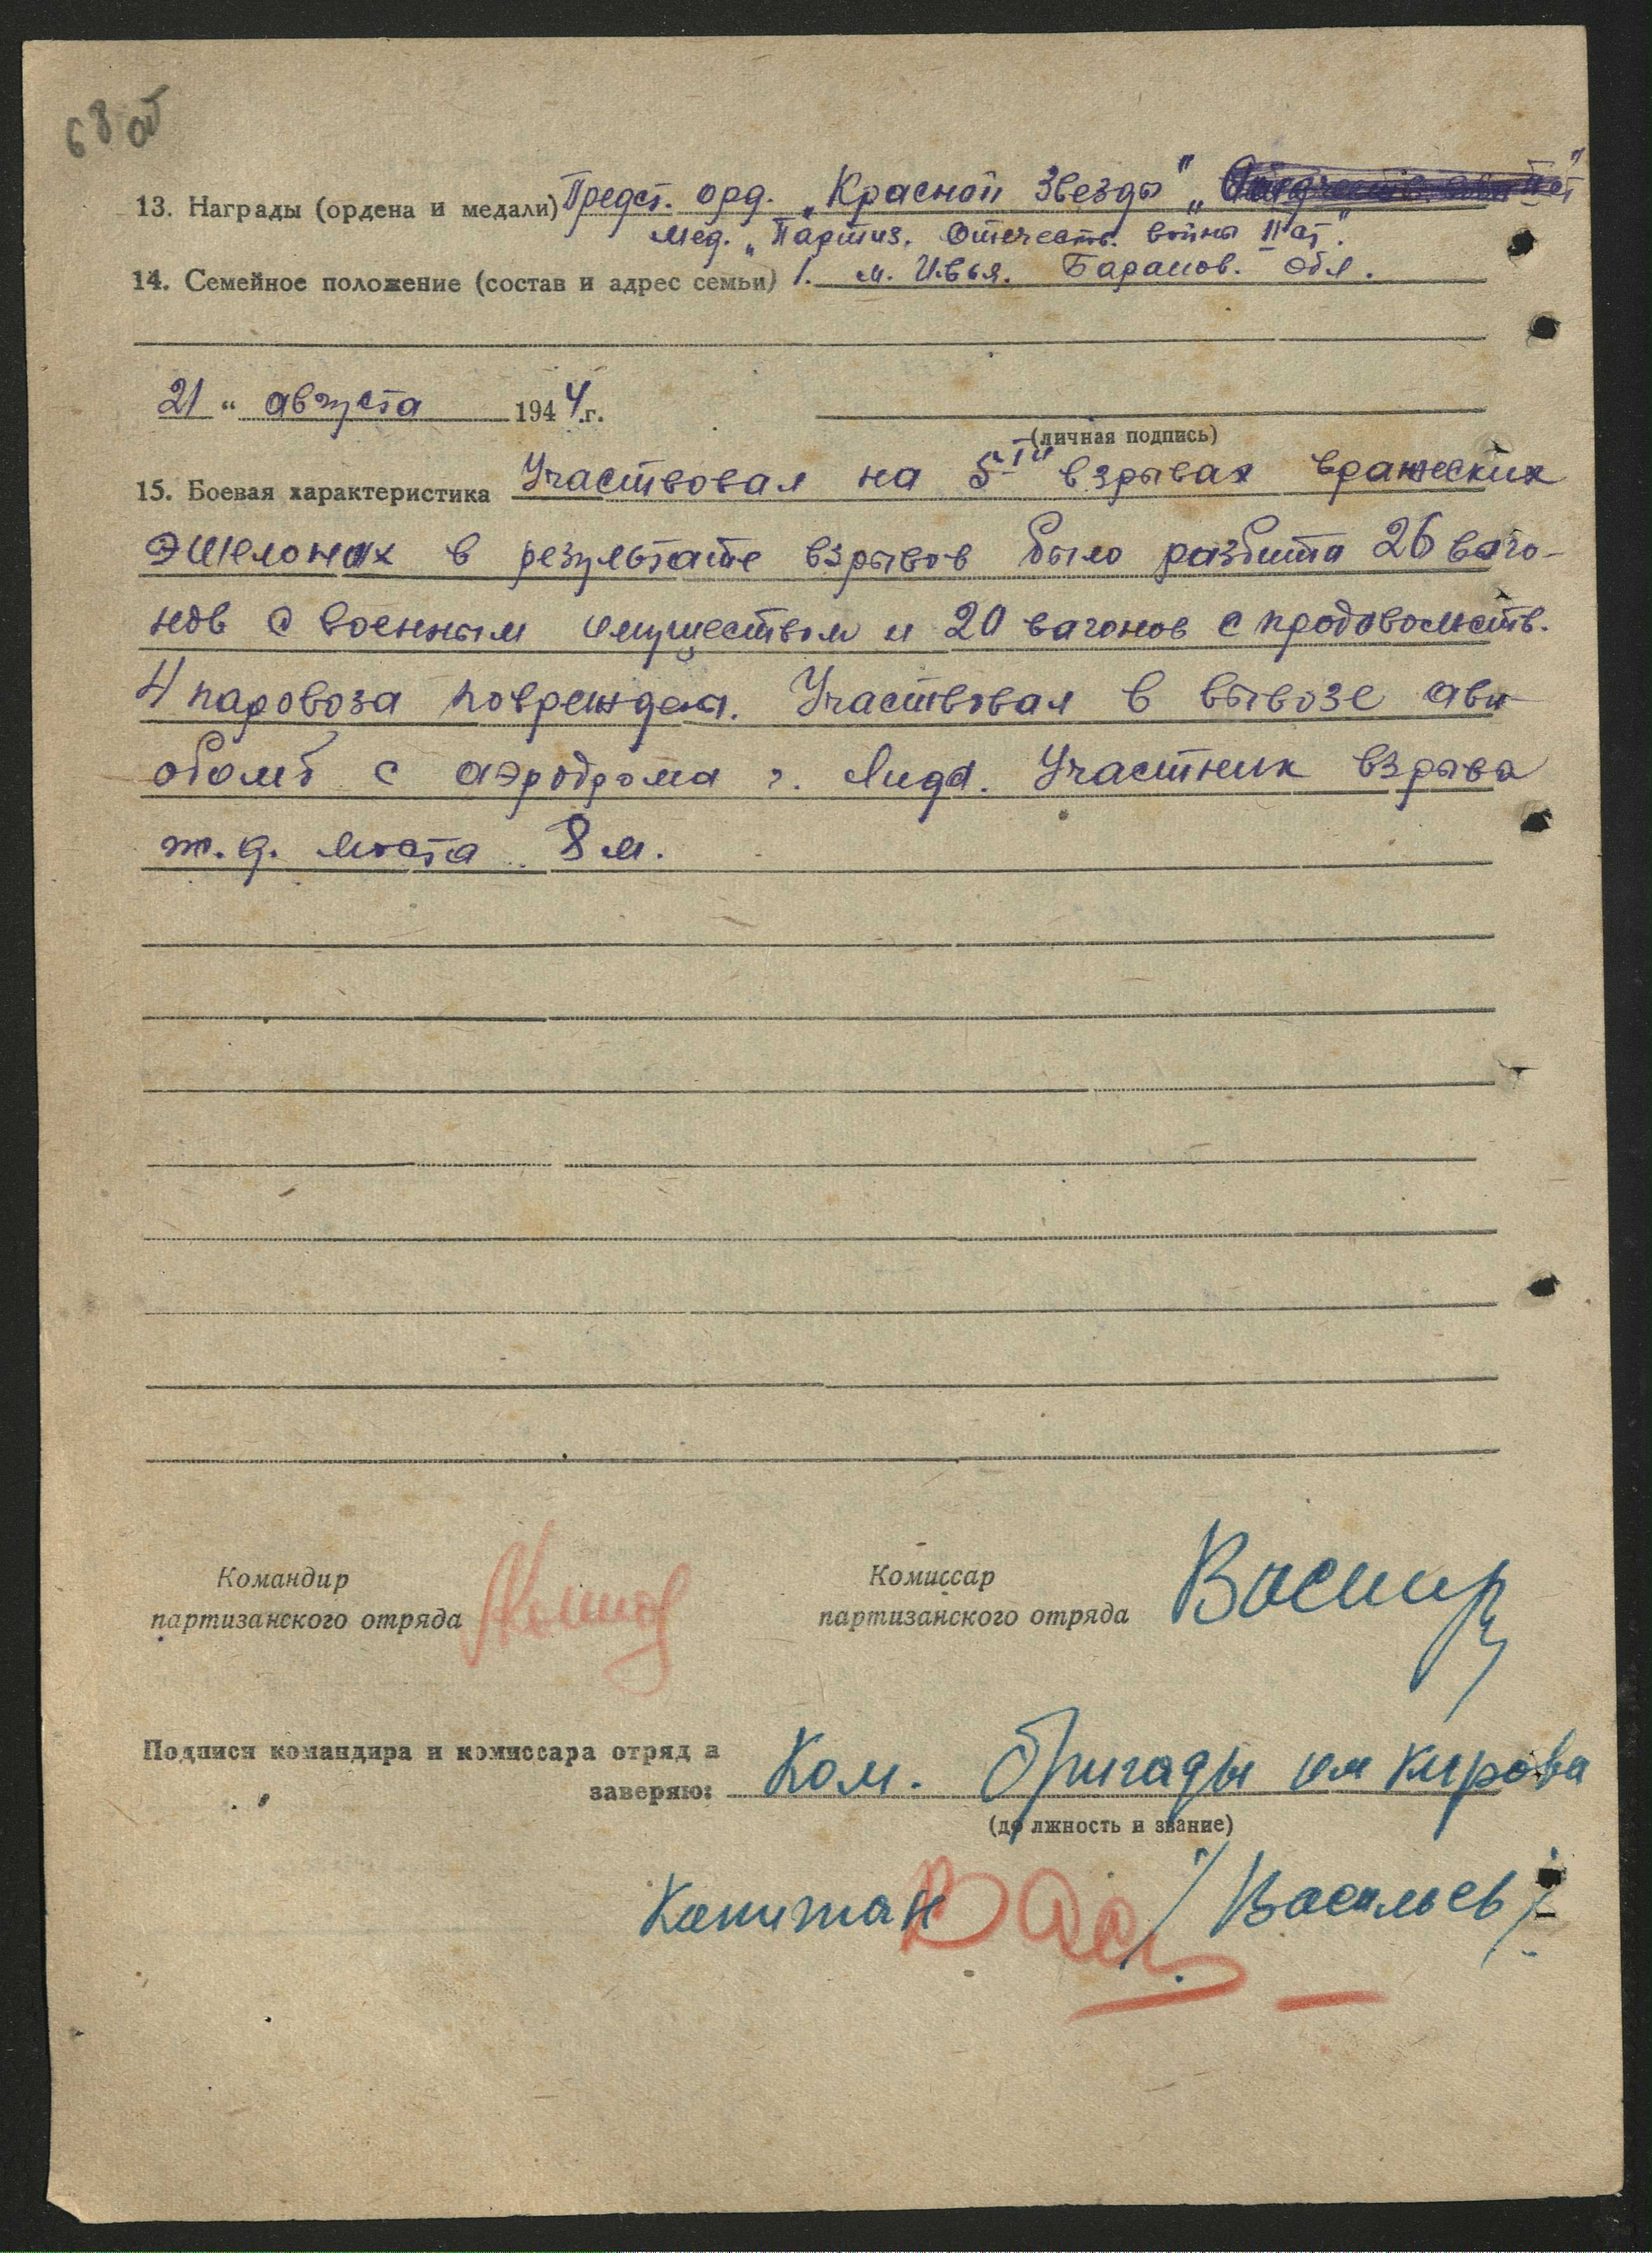 68 об
13. Награды (ордена и медали) Предст. орд. „Красной Звезды"
мед. „Партиз. Отечеств. войны II ст."
14. Семейное положение (состав и адрес семьи) 1. м. Ивья. Баранов. обл.
21 " августа 1944 г.
(личная подпись)
15. Боевая характеристика Участвовал на 5-ти взрывах вражеских
эшелонах в результате взрывов было разбито 26 ваго-
нов с военным имуществом и 20 вагонов с продовольств.
4 паровоза повреждено. Участвовал в вывозе ави
обомб с аэродрома г. Лида. Участник взрыва
ж.д. моста 8 м.
Командир
партизанского отряда
Комиссар
партизанского отряда
Подписи командира и комиссара отряда
заверяю: Ком. бригады им Кирова
(должность и звание)
Капитан Вас /Васильев/